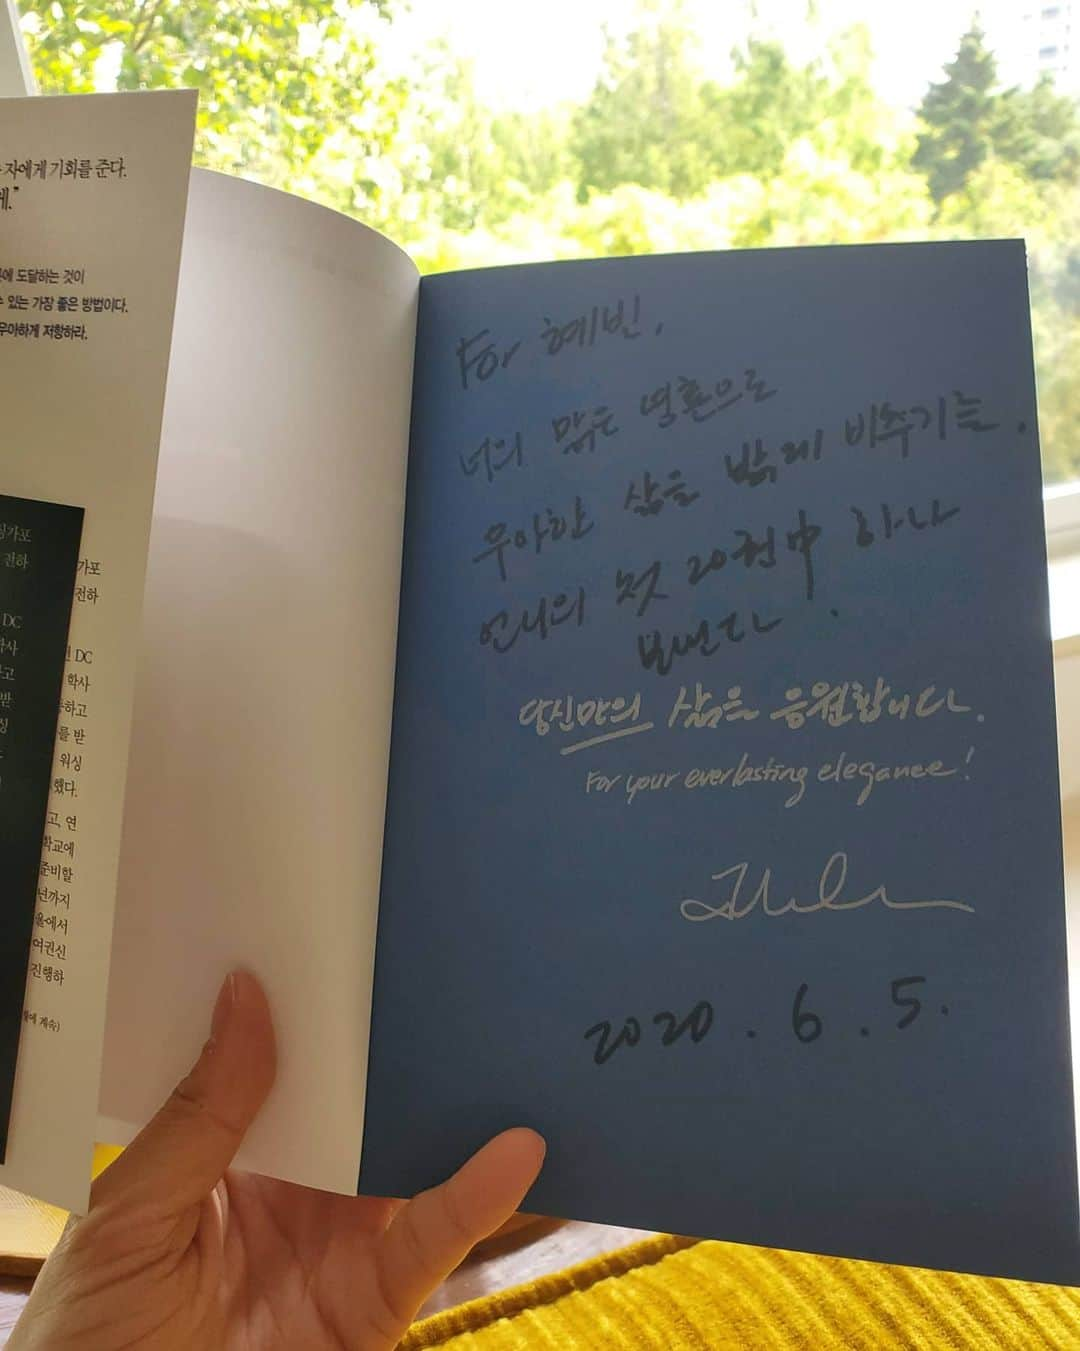 자에게 기회를 준다.
게."
에 도달하는 것이
있는 가장 좋은 방법이다.
우아하게 저항하라.
가포
전하
DC
학사
고
받
싱
가포
전하
DC
학사
하고
를 받
워싱
했다.
고, 연
학교에
준비할
년까지
울에서
여권신
진행하
계속)
For 혜빈,
너의 맑은 영혼으로
우아한 삶을 밝게 비추기를.
언니의 첫 20권中 하나
보낸다.
당신만의 삶을 응원합니다.
For your everlasting elegance!
2020. 6. 5.